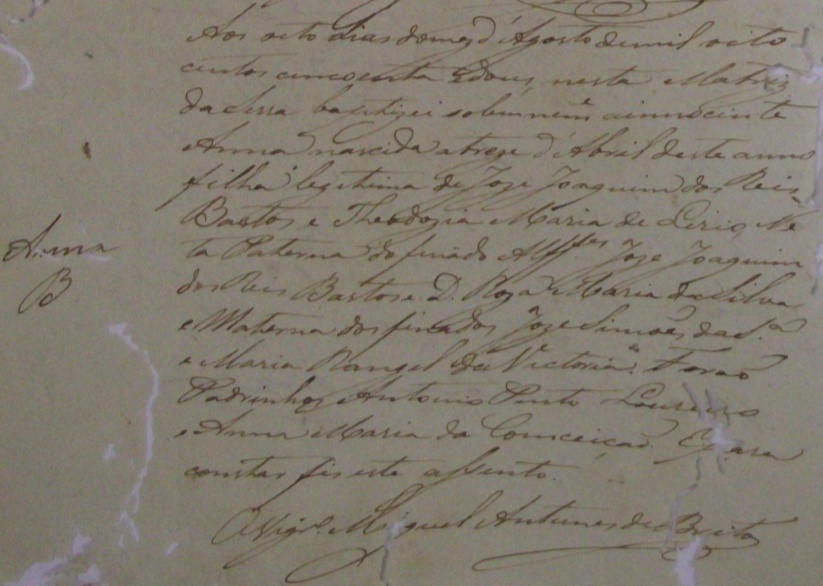 Aos oito dias do mez d'Agosto de mil oito
centos cincoenta e dous, nesta Matriz
da Serra baptizei solemnem.e a innocente
Anna nascida a treze d'Abril deste anno
filha legitima de Joze Joaquim dos Reis
Bastos e Theodozia Maria de Lirio, Ne
ta Paterna do finado Alff.es Joze Joaquim
dos Reis Bastos e D. Roza Maria da Silva
e Materna dos finados Joze Simões da S.a
e Maria Rangel da Victoria. Forão
Padrinhos Antonio Pinto Loureiro
e Anna Maria da Conceicão. E para
constar fis este assento.
O Vigr.o Miguel Antunes de Brito
Anna
B